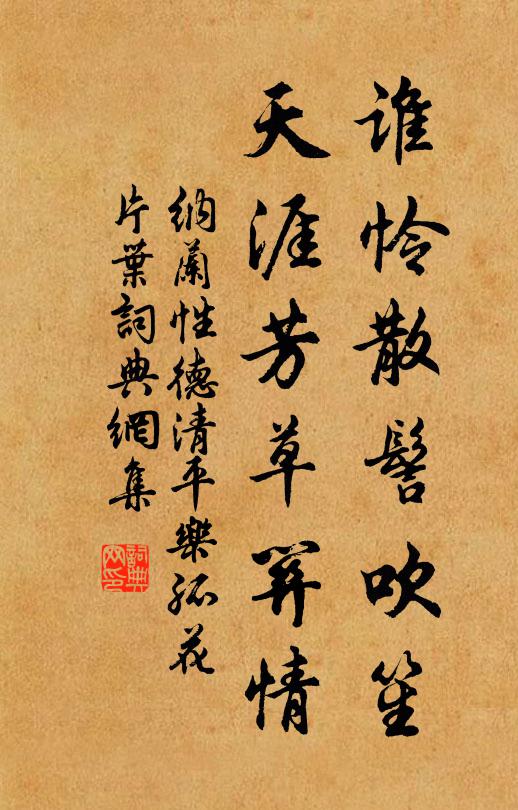 誰怜散髻吹笙
天涯芳草関情
納蘭性德清平樂孤花
片葉詞典網集
詞典
网印